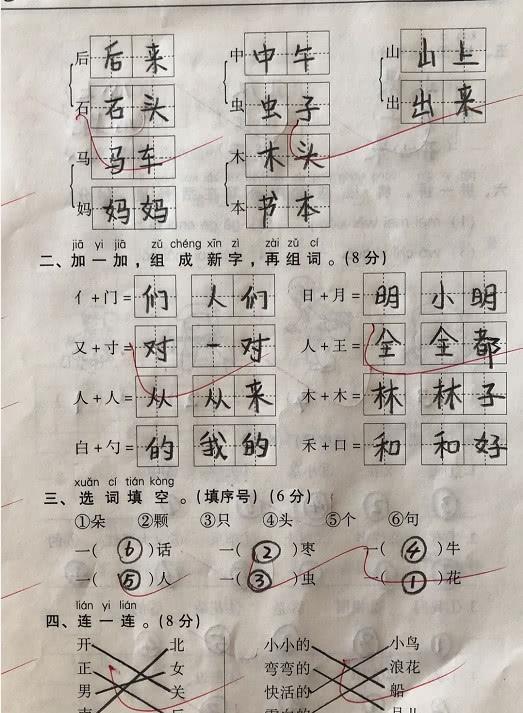 后 后来 中 中午 山 山上
石 石头 虫 虫子 出 出来
马 马车 木 木头
妈 妈妈 本 书本
jiā yi jiā zǔ chéng xīn zì zài zǔ cí
二、加一加，组成新字，再组词。(8分)
亻+门= 们 人们 日+月= 明 小明
又+寸= 对 一对 人+王= 全 全都
人+人= 从 从来 木+木= 林 林子
白+勺= 的 我的 禾+口= 和 和好
xuǎn cí tián kòng
三、选词填空。(填序号)(6分)
①朵 ②颗 ③只 ④头 ⑤个 ⑥句
一(⑥)话 一(②)枣 一(④)牛
一(⑤)人 一(③)虫 一(①)花
lián yi lián
四、连一连。(8分)
开 北 小小的 小鸟
正 女 弯弯的 浪花
男 关 快活的 船